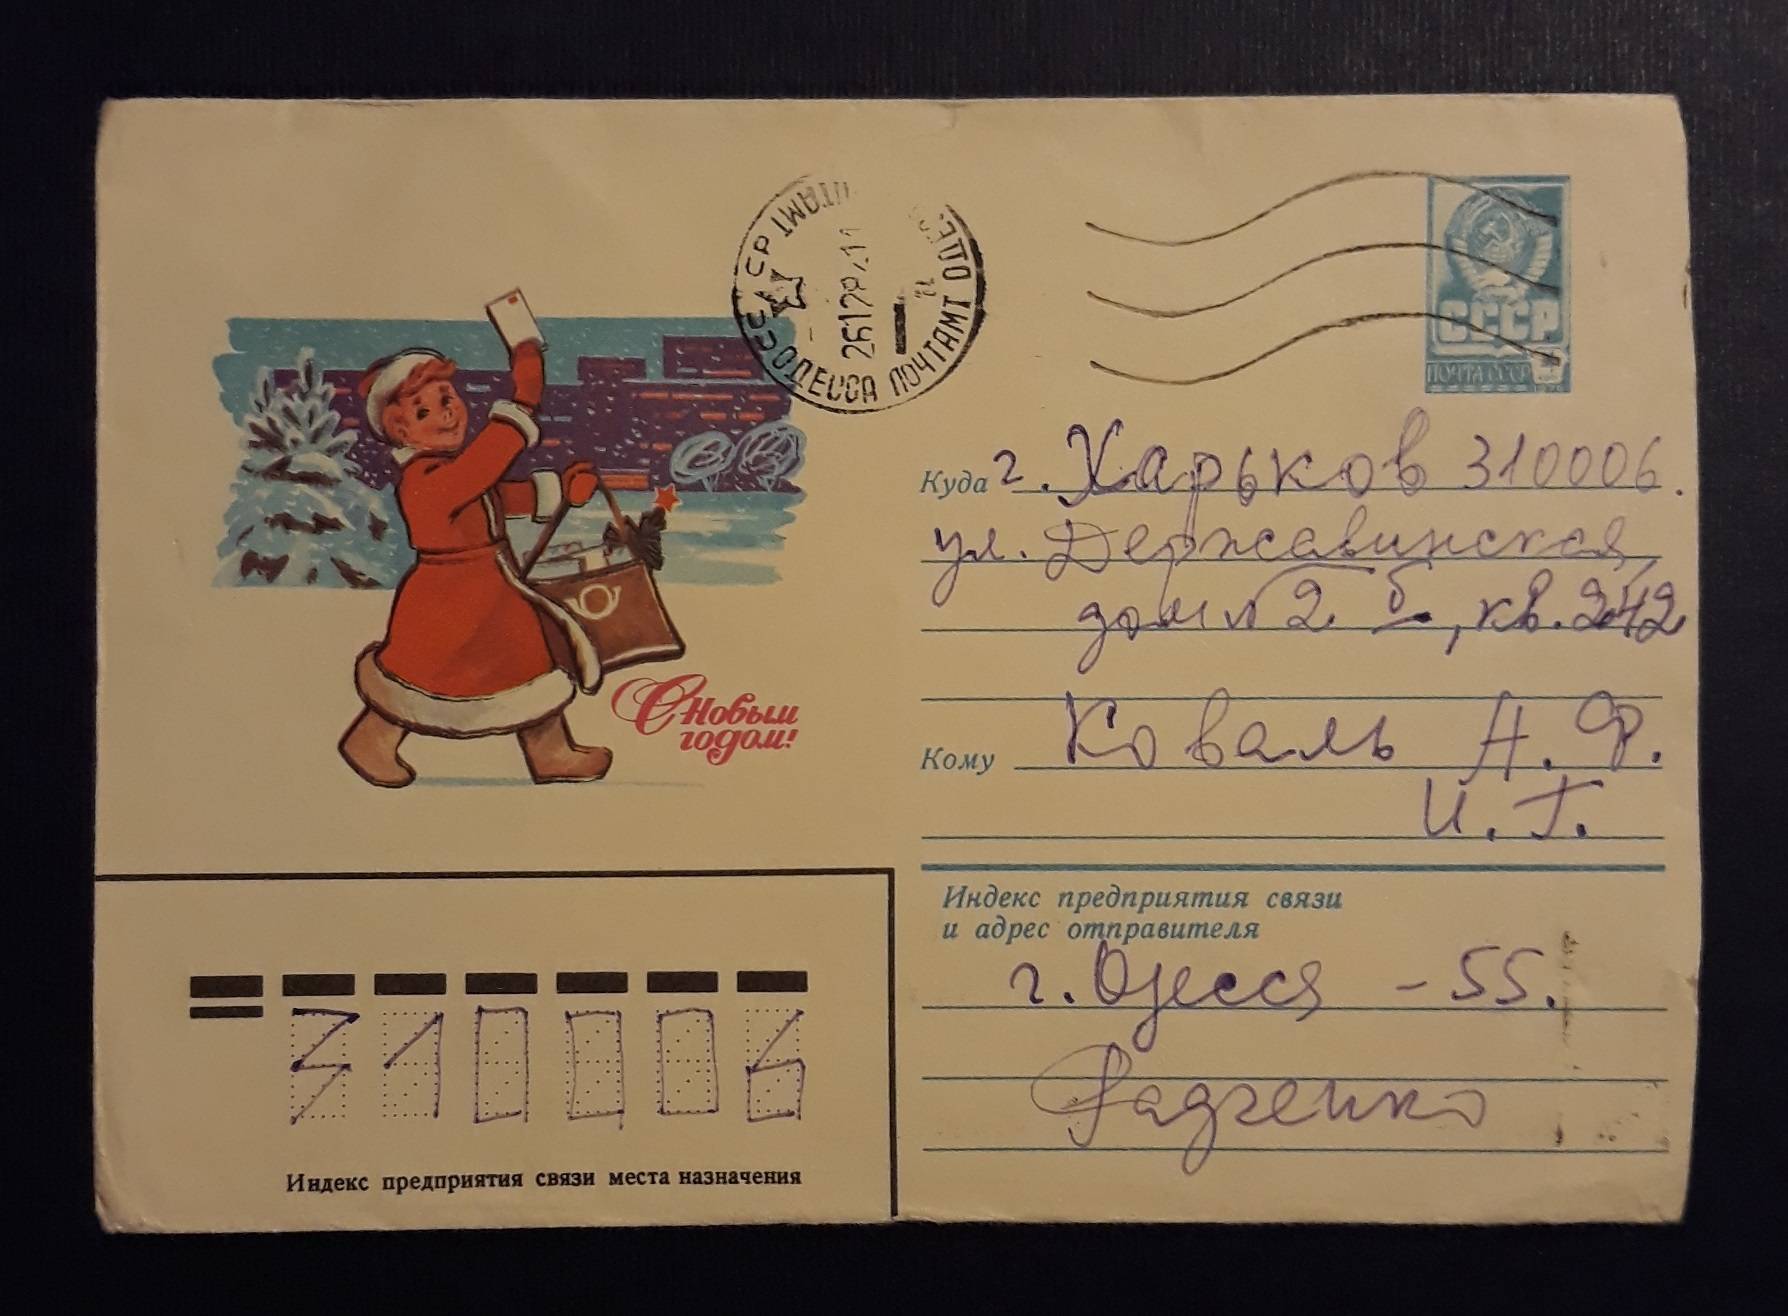 С Новым
годом!
ОДЕССА ПОЧТАМТ
СССР
ПОЧТА СССР
Куда г. Харьков 310006.
ул. Державинская
дом № 2 б, кв. 242
Кому Коваль А. Ф.
И. Г.
Индекс предприятия связи
и адрес отправителя
г. Одесса - 55.
Радченко
310006
Индекс предприятия связи места назначения